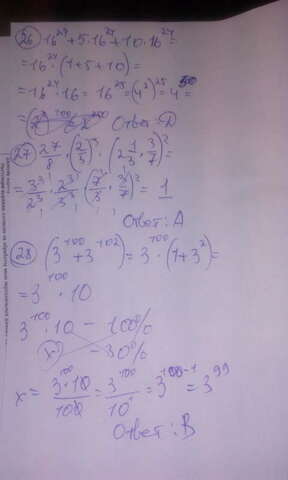 26 16²⁴ + 5·16²⁴ + 10·16²⁴ =
= 16²⁴·(1+5+10) =
= 16²⁴·16 = 16²⁵ = (4²)²⁵ = 4⁵⁰
= Ответ: D
27 27/8·(2/3)³·(2 1/3·3/7)² =
= 3³/2³·2³/3³·(7/3·3/7)² = 1
Ответ: A
28 (3¹⁰⁰ + 3¹⁰²) = 3¹⁰⁰·(1+3²) =
= 3¹⁰⁰·10
3¹⁰⁰·10 – 100%
x – 30%
x = 3¹⁰⁰·10/100 = 3¹⁰⁰/10 = 3¹⁰⁰⁻¹ = 3⁹⁹
Ответ: B